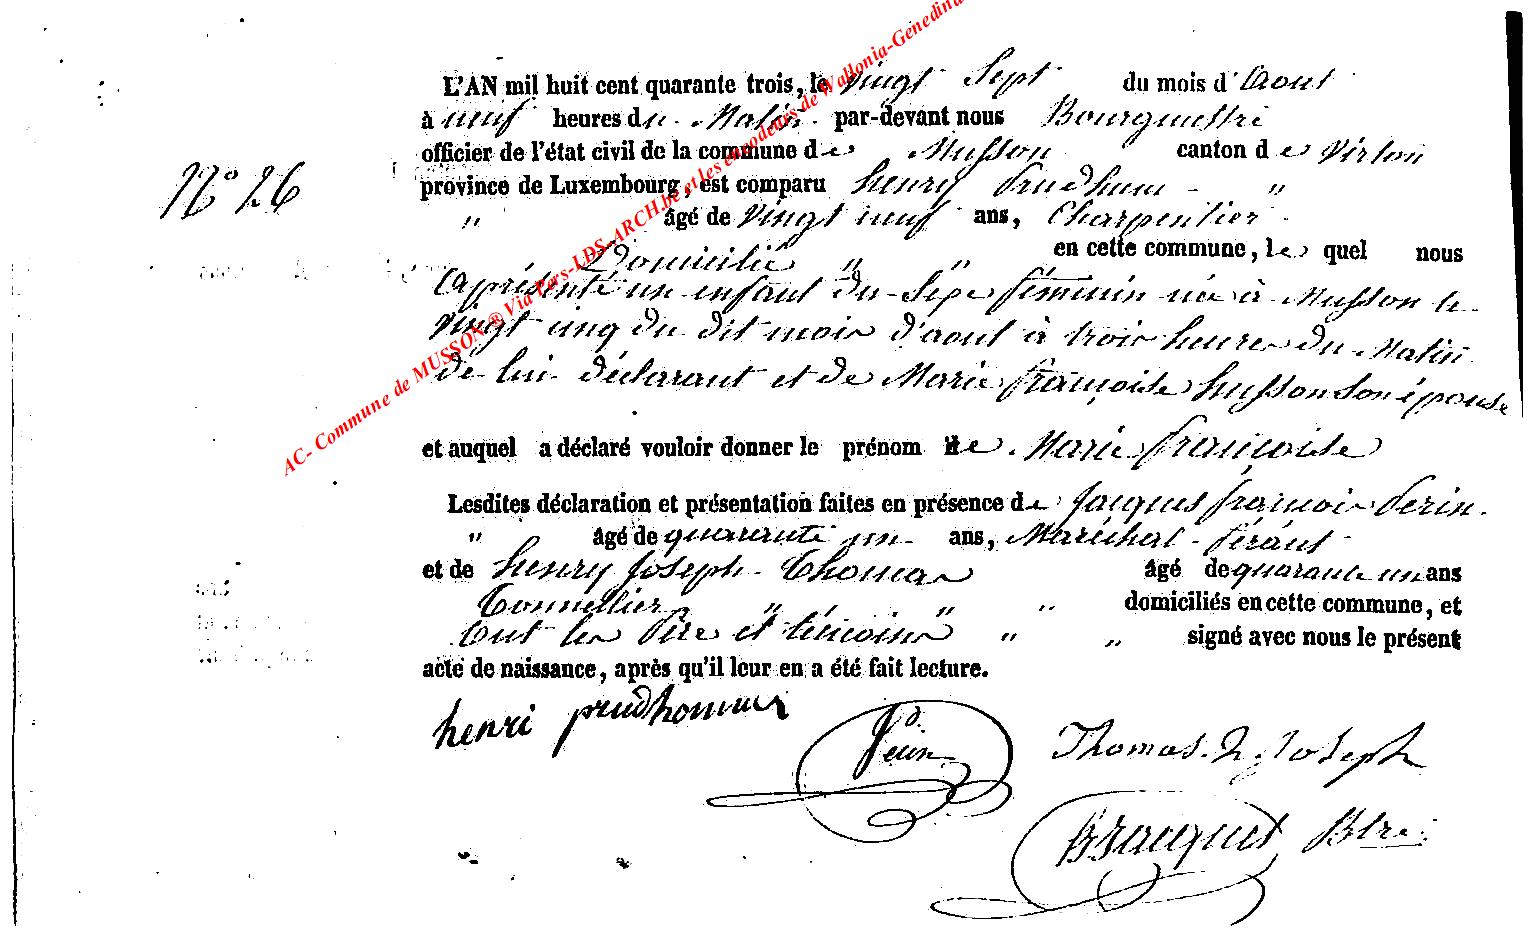 AC- Commune de MUSSON ® Via Pers-LDS-ARCH.be et les encodeurs de Wallonia-Genedina
L'AN mil huit cent quarante trois, le vingt Sept du mois d'Aout
à neuf heures du Matin par-devant nous
officier de l'état civil de la commune de Musson canton de Virton
N° 26
province de Luxembourg, est comparu henry Prudhum "
" âgé de vingt neuf ans, Charpentier
Domicilié " " en cette commune, le quel nous
a présenté un enfant du Sexe féminin née à Musson le
vingt cinq du dit mois d'aout à trois heures du Matin
de lui déclarant et de Marie françoise husson son épouse
et auquel a déclaré vouloir donner le prénom de Marie françoise
Lesdites déclaration et présentation faites en présence de Jacques françois Perin
" âgé de quarante un ans, Maréchal férant
et de henry Joseph Thomas âgé de quarante un ans
Tonnellier " " " domiciliés en cette commune, et
ont les Père et témoins " " signé avec nous le présent
acte de naissance, après qu'il leur en a été fait lecture.
henri prudhommes
Perin
Thomas. h. Joseph